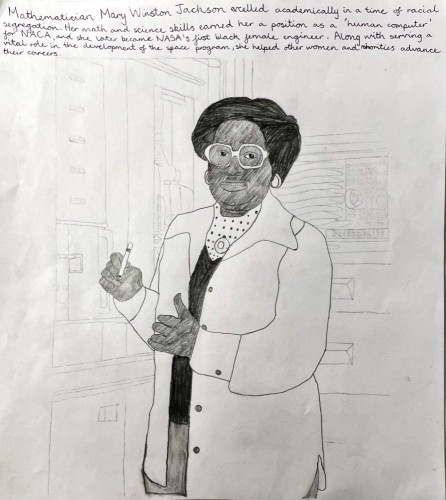 Mathematician Mary Winston Jackson excelled academically in a time of racial
segregation. Her math and science skills earned her a position as a 'human computer'
for NACA, and she later became NASA's first black female engineer. Along with serving a
vital role in the development of the space program, she helped other women and minorities advance
their careers.